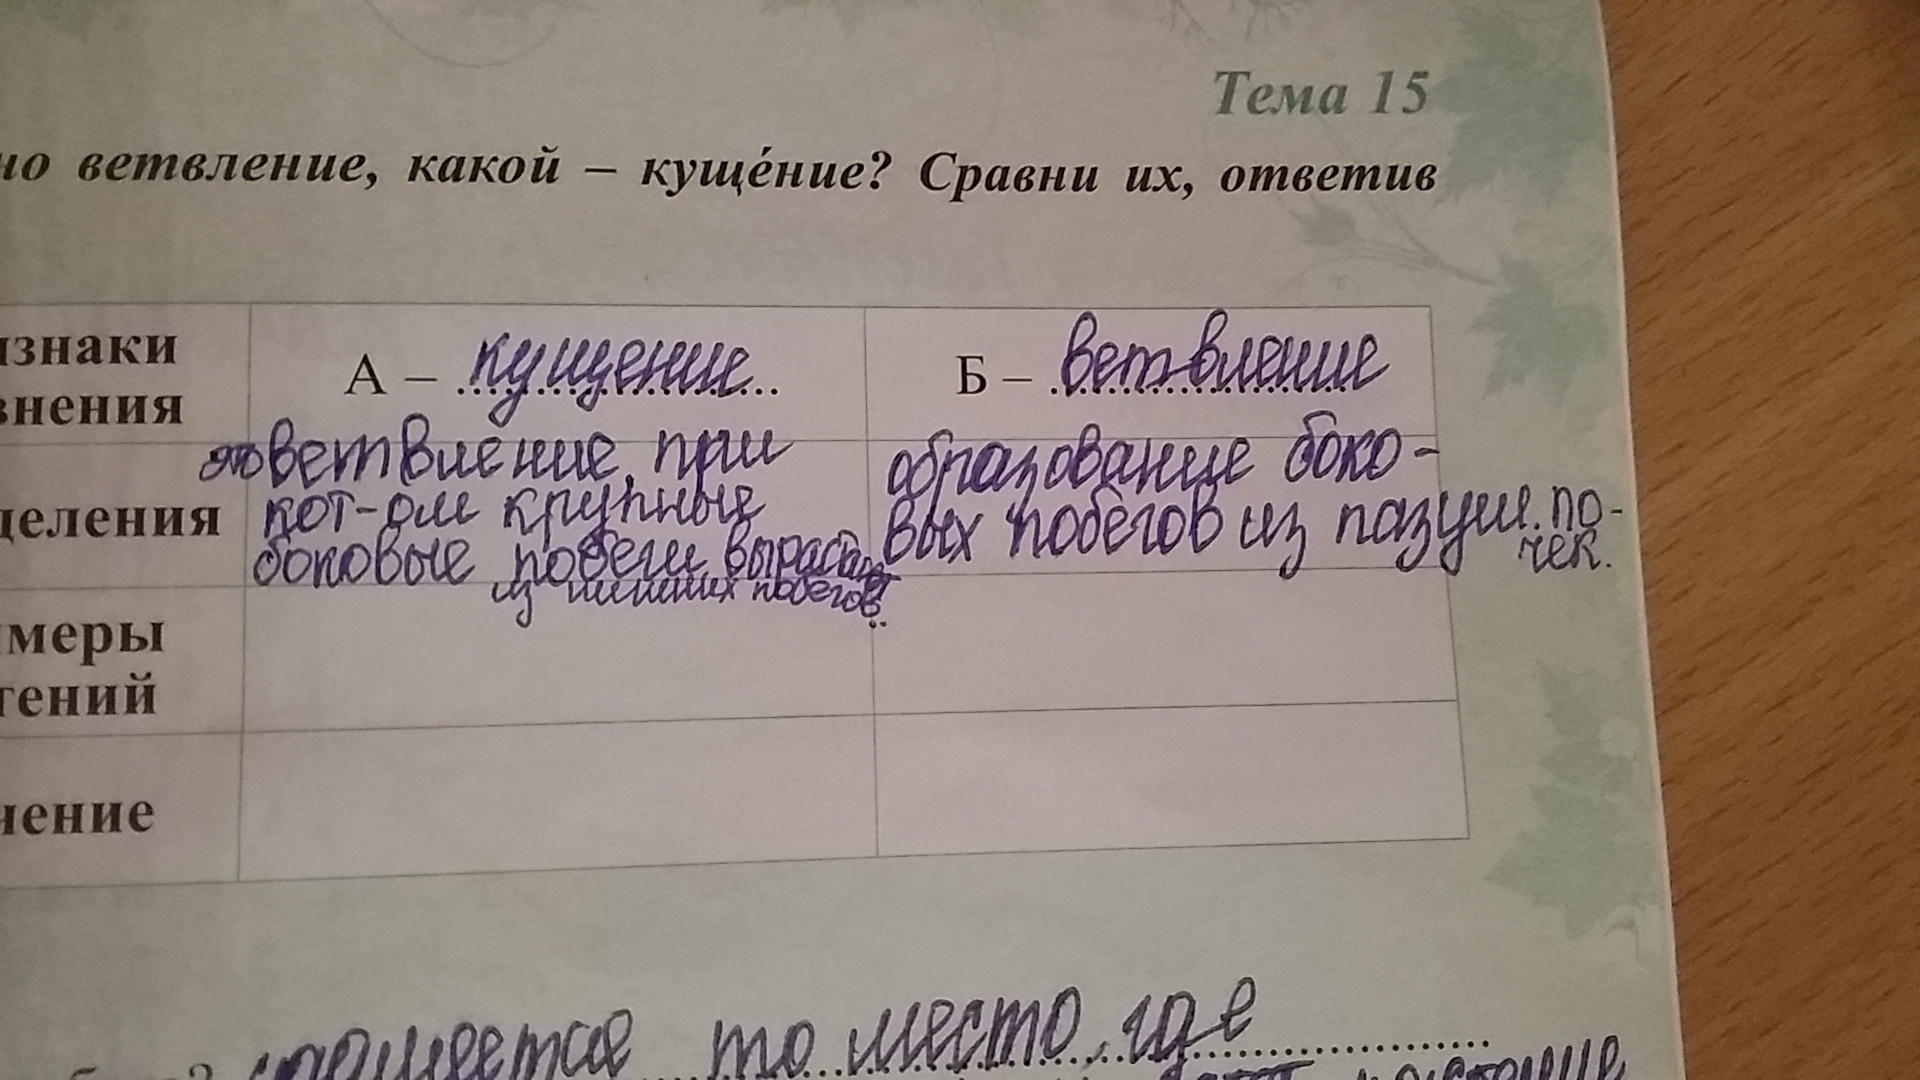 Тема 15
но ветвление, какой – кущéние? Сравни их, ответив
изнаки
внения
А – кущение
Б – ветвление
деления
это ветвление, при
кот-ом крупные
боковые побеги вырастают
из нижних побегов.
образование боко-
вых побегов из пазуш. по-
чек.
меры
тений
чение
то место, где